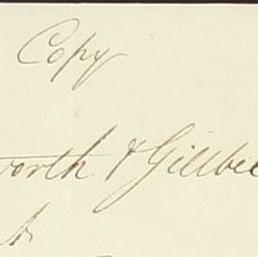 Copy
worth & Gillbee